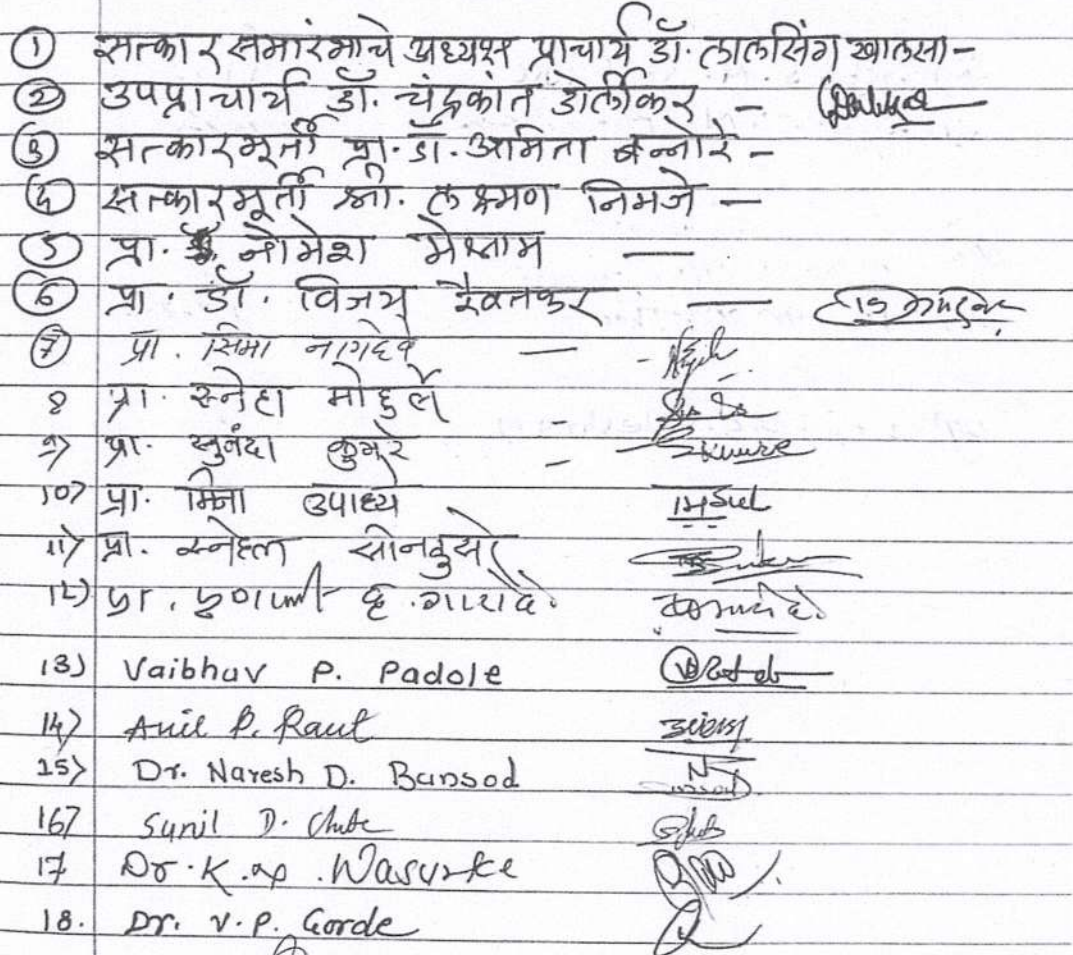 ① सत्कार समारंभाचे अध्यक्ष प्राचार्य डॉ. लालसिंग खालसा -
② उपप्राचार्य डॉ. चंद्रकांत डोर्लीकर -
③ सत्कारमूर्ती प्रा. डॉ. अमिता बन्नोरे -
④ सत्कारमूर्ती श्री. लक्ष्मण निमजे -
⑤ प्रा. नोमेश मेश्राम -
⑥ प्रा. डॉ. विजय रैवतकर -
⑦ प्रा. सिमा नागदेवे -
8 प्रा. स्नेहा मोहुर्ले
9) प्रा. सुनंदा कुमरे -
10) प्रा. मिना उपाध्ये
11) प्रा. स्नेहल सोनकुसरे
12) प्रा.
13) Vaibhav P. Padole
14) Anil P. Raut
15) Dr. Naresh D. Bansod
16) Sunil D. Chute
17 Dr. K. Wasurke
18. Dr. V. P. Gorde